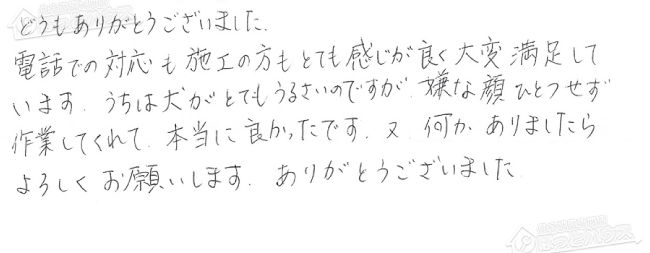 どうもありがとうございました.
電話での対応も施工の方もとても感じが良く大変満足して
います. うちは犬がとてもうるさいのですが 嫌な顔ひとつせず
作業してくれて. 本当に良かったです. 又 何か ありましたら
よろしく お願いします. ありがとうございました